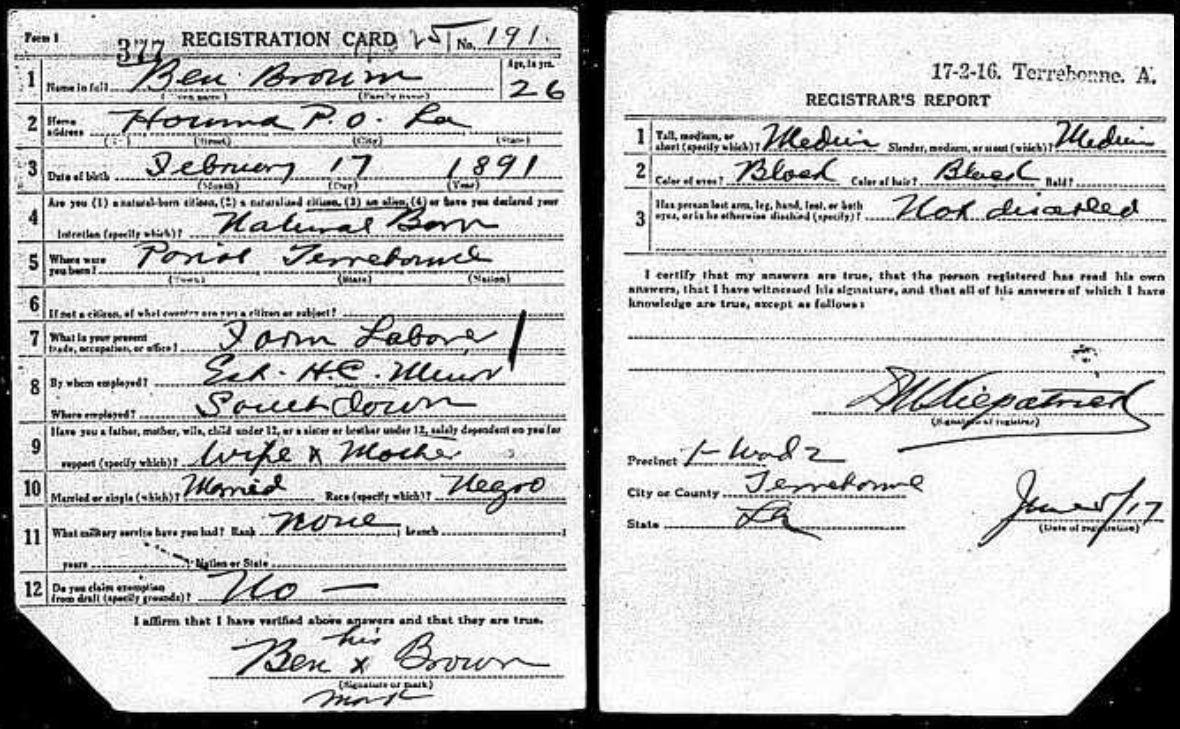 Form 1
377 REGISTRATION CARD No. 191
1 Name in full Ben Brown Age, in yrs. 26
(Given name) (Family name)
2 Home address Houma P.O. La
(No.) (Street) (City) (State)
3 Date of birth February 17 1891
(Month) (Day) (Year)
4 Are you (1) a natural-born citizen, (2) a naturalized citizen, (3) an alien, (4) or have you declared your
intention (specify which)? Natural Born
5 Where were you born? Parish Terrebonne
(Town) (State) (Nation)
6 If not a citizen, of what country are you a citizen or subject?
7 What is your present trade, occupation, or office? Farm Labore
8 By whom employed? Est. H.C. Minor
Where employed? Southdown
9 Have you a father, mother, wife, child under 12, or a sister or brother under 12, solely dependent on you for
support (specify which)? Wife & Mother
10 Married or single (which)? Married Race (specify which)? Negro
11 What military service have you had? Rank None ; branch ;
years Nation or State
12 Do you claim exemption from draft (specify grounds)? No —
I affirm that I have verified above answers and that they are true.
his
Ben x Brown
(Signature or mark)
mark
17-2-16. Terrebonne. A.
REGISTRAR'S REPORT
1 Tall, medium, or short (specify which)? Medium Slender, medium, or stout (which)? Medium
2 Color of eyes? Black Color of hair? Black Bald?
3 Has person lost arm, leg, hand, foot, or both eyes, or is he otherwise disabled (specify)? Not disabled
I certify that my answers are true, that the person registered has read his own
answers, that I have witnessed his signature, and that all of his answers of which I have
knowledge are true, except as follows:
Kilpatrick
(Signature of registrar)
Precinct 1- Ward 2
City or County Terrebonne
State La
June 5/17
(Date of registration)